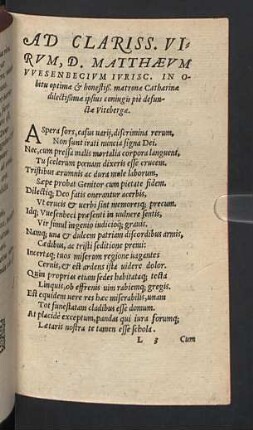 AD CLARISS. VI-
RVM, D. MATTHÆVM
VVESENBECIVM IVRISC. IN O-
bitu optimæ & honestiss. matronæ Catharinæ
dilectissimæ ipsius coniugis piè defun-
ctæ Vitebergæ.
ASpera sors, casus varij, discrimina rerum,
Non sunt irati nuncia signa Dei.
Nec, cum pressa malis mortalia corpora languent,
Tu scelerum pœnam dixeris esse crucem.
Tristibus ærumnis ac dura mole laborum,
Sæpe probat Genitor cum pietate fidem.
Dilectiq; Deo fatis onerantur acerbis,
Vt crucis & verbi sint memoresq; precum.
Idq; Vuesenbeci præsenti in vulnere sentis,
Vir simul ingenio iudicioq; grauis.
Namq; una & duldem patriam disceribus armis,
Cædibus, ac tristi seditione premi:
Incertaq; tuos miserum regione uagantes
Cernis, & est ardens ista uidere dolor.
Quin proprias etiam sedes habitataq; tecta
Linquis, ob effrenis uim rabiemq; gregis.
Est equidem uere res hæc miserabilis, unam
Tot funestatam cladibus esse domum.
At placidè exceptum, pandat qui iura forumq;
Lætaris nostra te tamen esse schola.
L 3 Cum